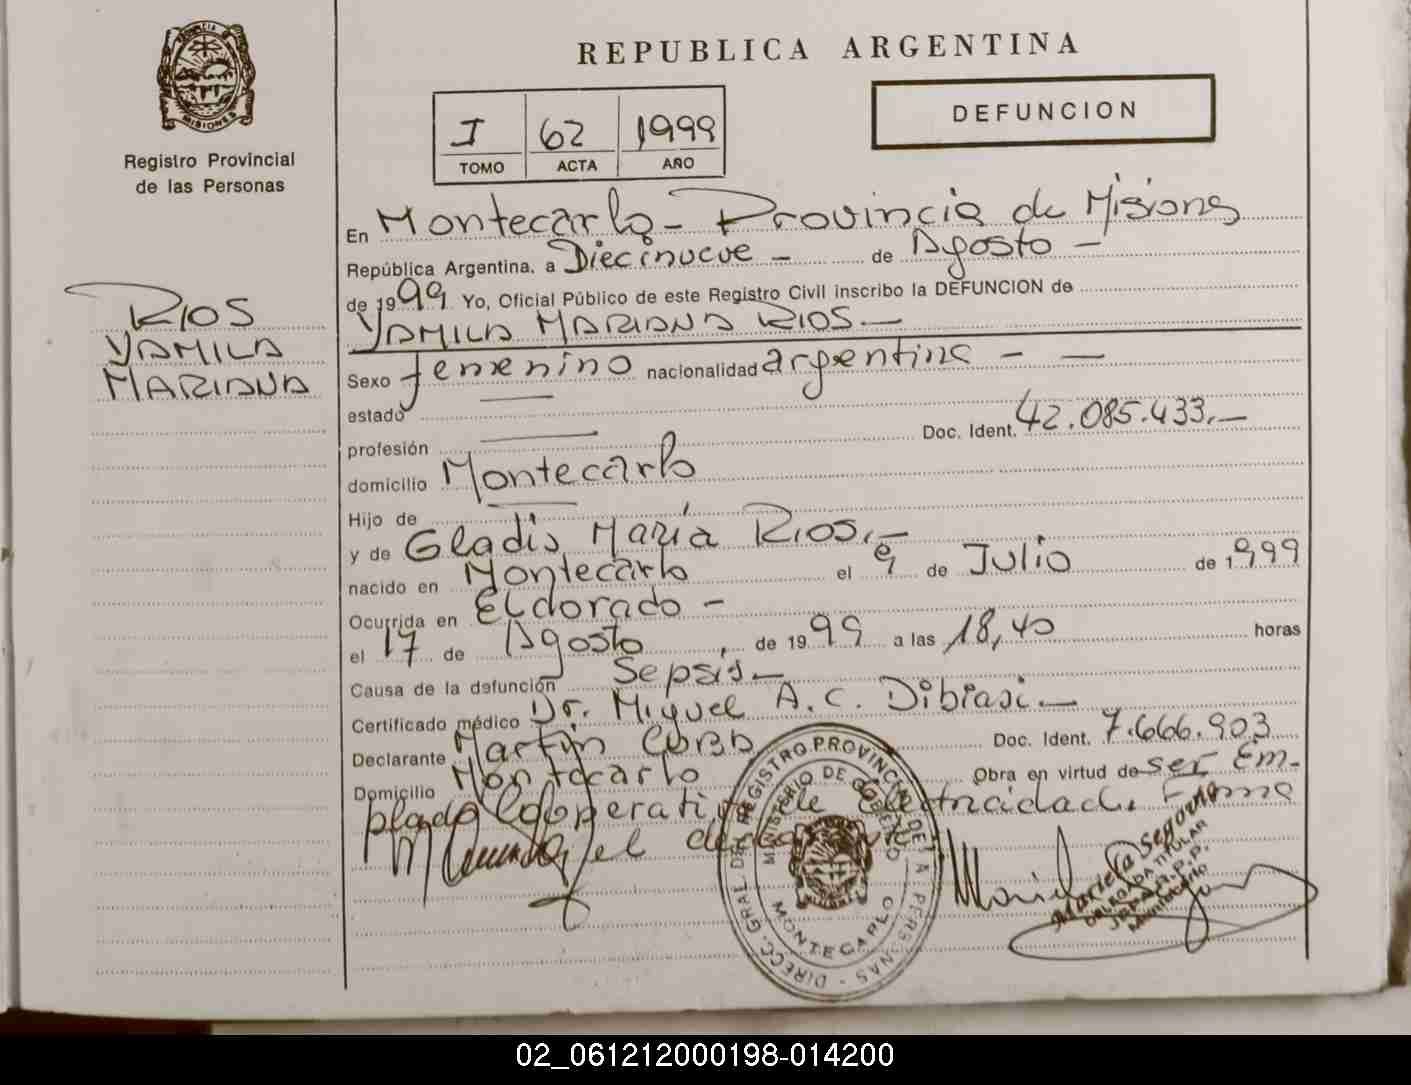 REPUBLICA ARGENTINA
PROVINCIA DE
MISIONES
Registro Provincial
de las Personas
I 62 1999
TOMO ACTA AÑO
DEFUNCION
RIOS
YAMILA
MARIANA
En Montecarlo - Provincia de Misiones
República Argentina, a Diecinueve - de Agosto -
de 1999 Yo, Oficial Público de este Registro Civil inscribo la DEFUNCION de
YAMILA MARIANA RIOS -
Sexo femenino nacionalidad argentina - -
estado
profesión Doc. Ident. 42.085.433.-
domicilio Montecarlo
Hijo de
y de Gladis María Rios.-
nacido en Montecarlo el 9 de Julio de 1999
Ocurrida en Eldorado -
el 17 de Agosto, de 1999 a las 18,40 horas
Causa de la defunción Sepsis -
Certificado médico Dr. Miguel A. C. Dibiasi -
Declarante Martín CUBA Doc. Ident. 7.666.903
Domicilio Montecarlo Obra en virtud de ser Em-
pleado Cooperativa de Electricidad. Firma
el declarante
DIRECC. GRAL. DEL REGISTRO PROVINCIAL DE LA PERSONAS
MINISTERIO DE GOBIERNO
MONTECARLO
Mariela Segovia
DELEGADA TITULAR
02_061212000198-014200